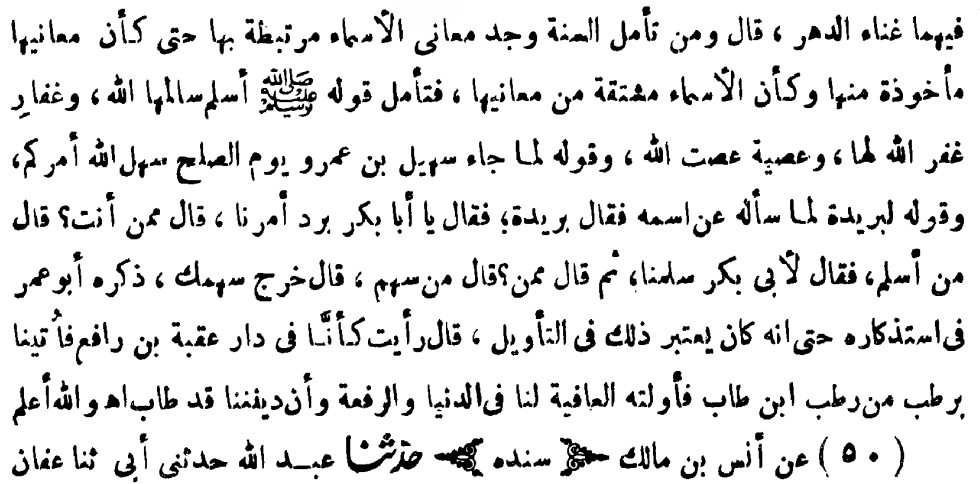 فيهما غناء الدهر ، قال ومن تأمل السنة وجد معانى الأسماء مرتبطة بها حتى كأن معانيها
مأخوذة منها وكأن الأسماء مشتقة من معانيها ، فتأمل قوله ﷺ أسلم سالمها الله ، وغفارِ
غفر الله لها ، وعصية عصت الله ، وقوله لما جاء سهيل بن عمرو يوم الصلح سهل الله أمركم،
وقوله لبريدة لما سأله عن اسمه فقال بريدة؛ فقال يا أبا بكر برد أمرنا ، قال ممن أنت؟ قال
من أسلم، فقال لأبى بكر سلمنا؛ ثم قال ممن؟ قال من سهم ، قال خرج سهمك ، ذكره أبو عمر
فى استذكاره حتى انه كان يعتبر ذلك فى التأويل ، قال رأيت كأنَّا فى دار عقبة بن رافع فأُتينا
برطب من رطب ابن طاب فأولته العافية لنا فى الدنيا والرفعة وأن ديفننا قد طاب اهـ والله أعلم
( ٥٠ ) عن أنس بن مالك ﴿ سنده ﴾ حدّثنا عبد الله حدثنى أبى ثنا عفان